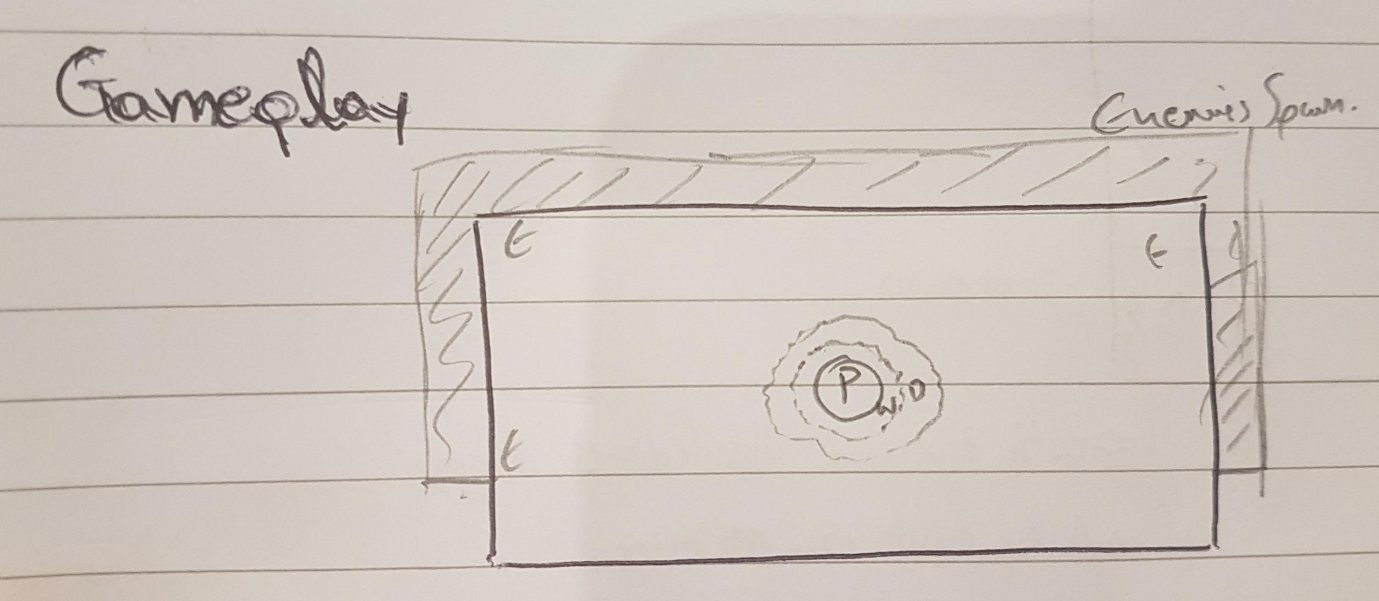 Gameplay
Enemies Spawn.
E
E
P
W D
E